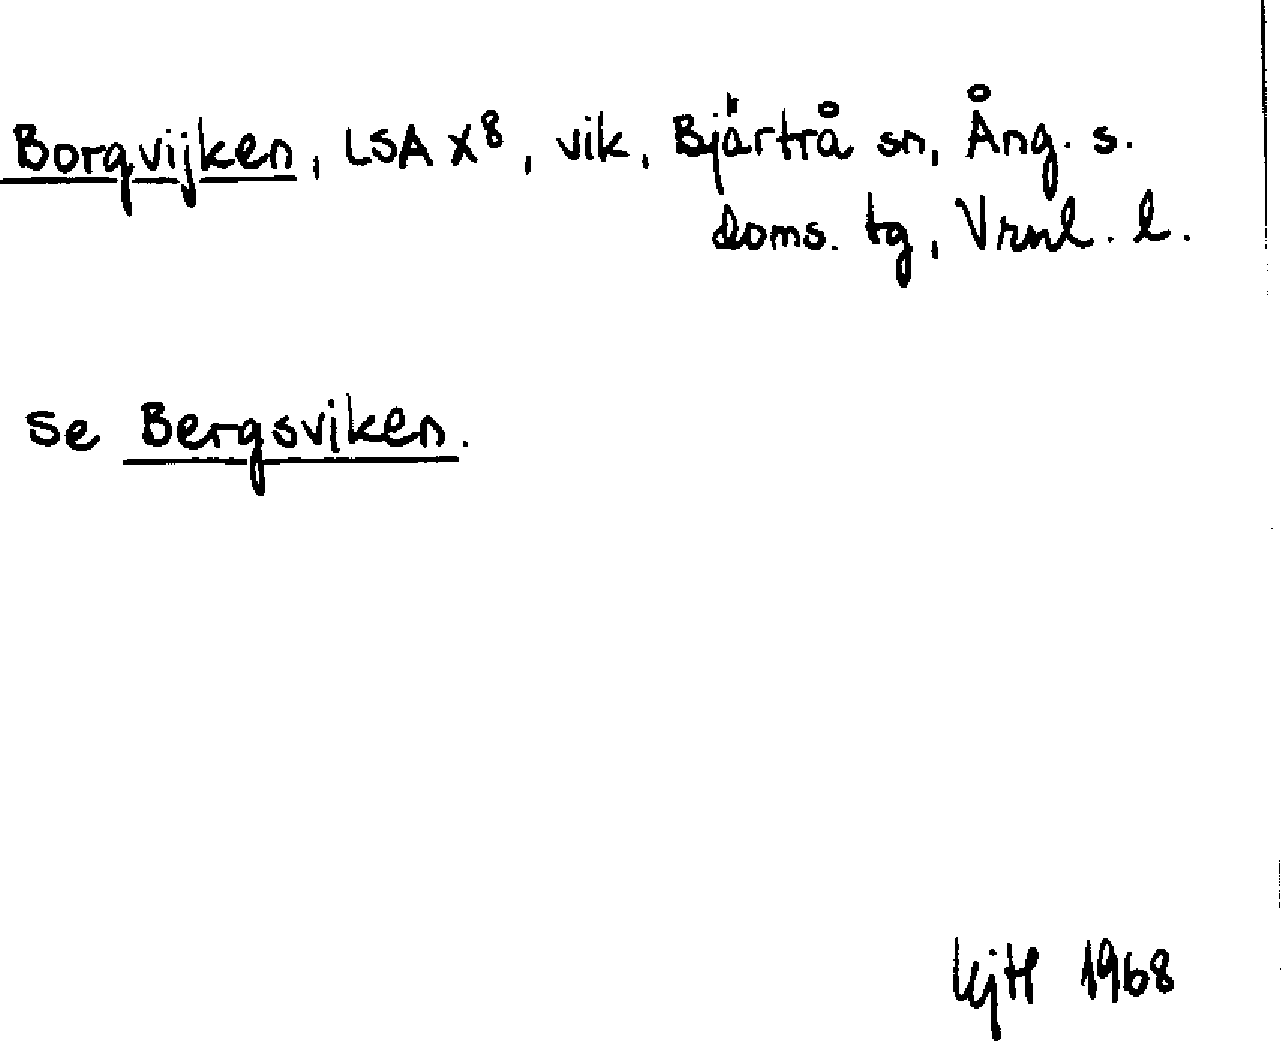 Borgvijken, LSA X⁸, vik, Bjärtrå sn, Ång. s.
doms. tg, Vrnl. l.
Se Bergsviken.
1968